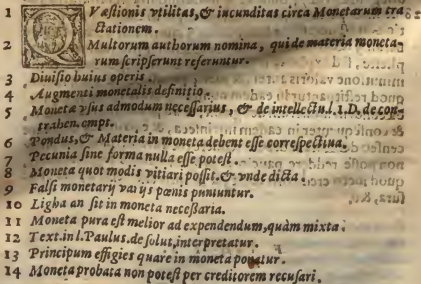 1 QVæstionis vtilitas, & iucunditas circa Monetarum tra
ctationem.
2 Multorum authorum nomina, qui de materia moneta-
rum scripserunt referuntur.
3 Diuisio huius operis.
4 Augmenti monetalis definitio.
5 Monetæ vsus admodum necessarius, & de intellectu l. 1. D. de con-
trahen. empt.
6 Pondus, & Materia in moneta debent esse correspectiua.
7 Pecunia sine forma nulla esse potest.
8 Moneta quot modis vitiari possit. & vnde dicta.
9 Falsi monetarij varijs pœnis puniuntur.
10 Ligha an sit in moneta necessaria.
11 Moneta pura est melior ad expendendum, quàm mixta.
12 Text. in l. Paulus. de solut, interpretatur.
13 Principum effigies quare in moneta ponatur.
14 Moneta probata non potest per creditorem recusari.